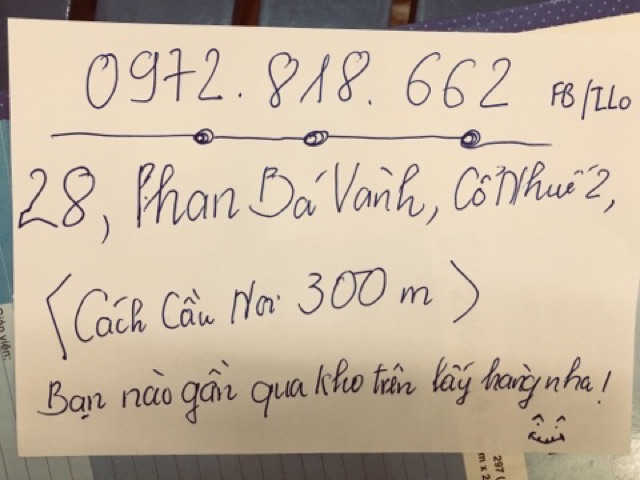 0972.818.662 FB/ILo
28, Phan Bá Vành, Cổ Nhuế 2,
(Cách Cầu Noi 300m)
Bạn nào gần qua kho trên lấy hàng nha!
Giáo viên:
297 (
m x 2